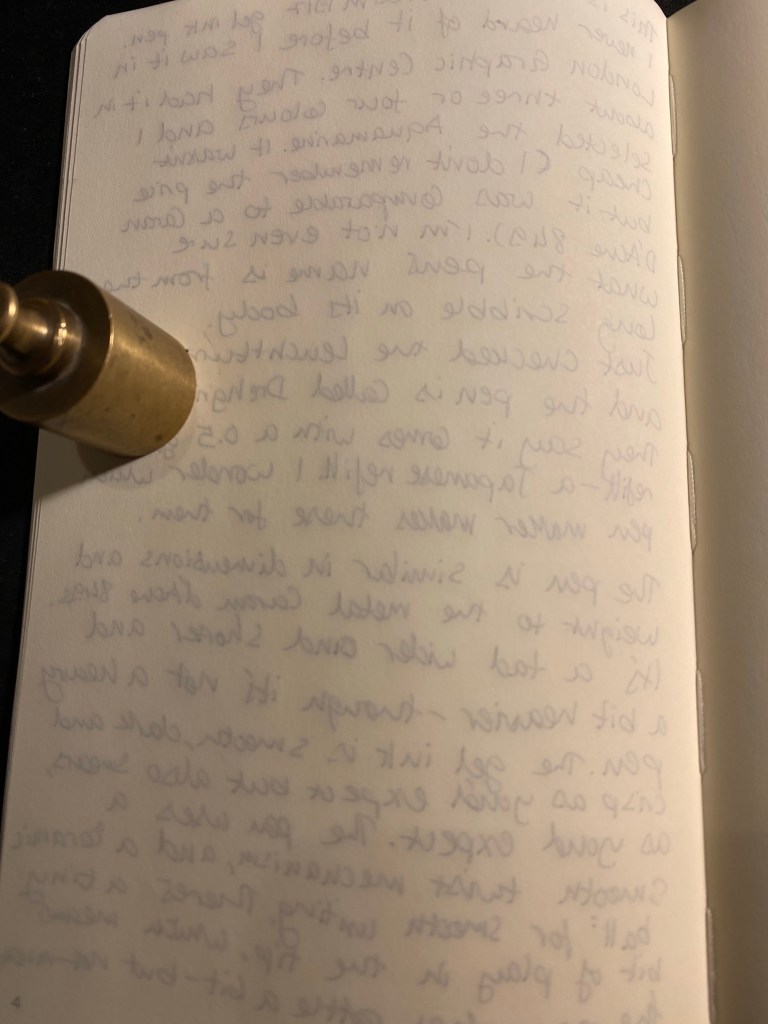 This is
I never heard of it before I saw it in
gel ink pen.
London Graphic Centre. They had it in
about three or four colours and I
selected the Aquamarine. It wasn't
cheap (I don't remember the price
but it was comparable to a Caran
D'Ache 849). I'm not even sure
what the pen's name is from the
long scribble on its body.
Just checked the Leuchtturm
and the pen is called Drehg
They say it comes with a 0.5
refill - a Japanese refill I wonder
pen maker makes these for them.
The pen is similar in dimensions and
weight to the metal Caran d'Ache 849s.
It's a tad wider and shorter and
a bit heavier - though it's not a heavy
pen. The gel ink is smooth, dark and
crisp as you'd expect but also smears,
as you'd expect. The pen uses a
smooth twist mechanism, and a ceramic
ball for smooth writing. There's a tiny
bit of play in the tip, which means
the rattle a bit - but
4